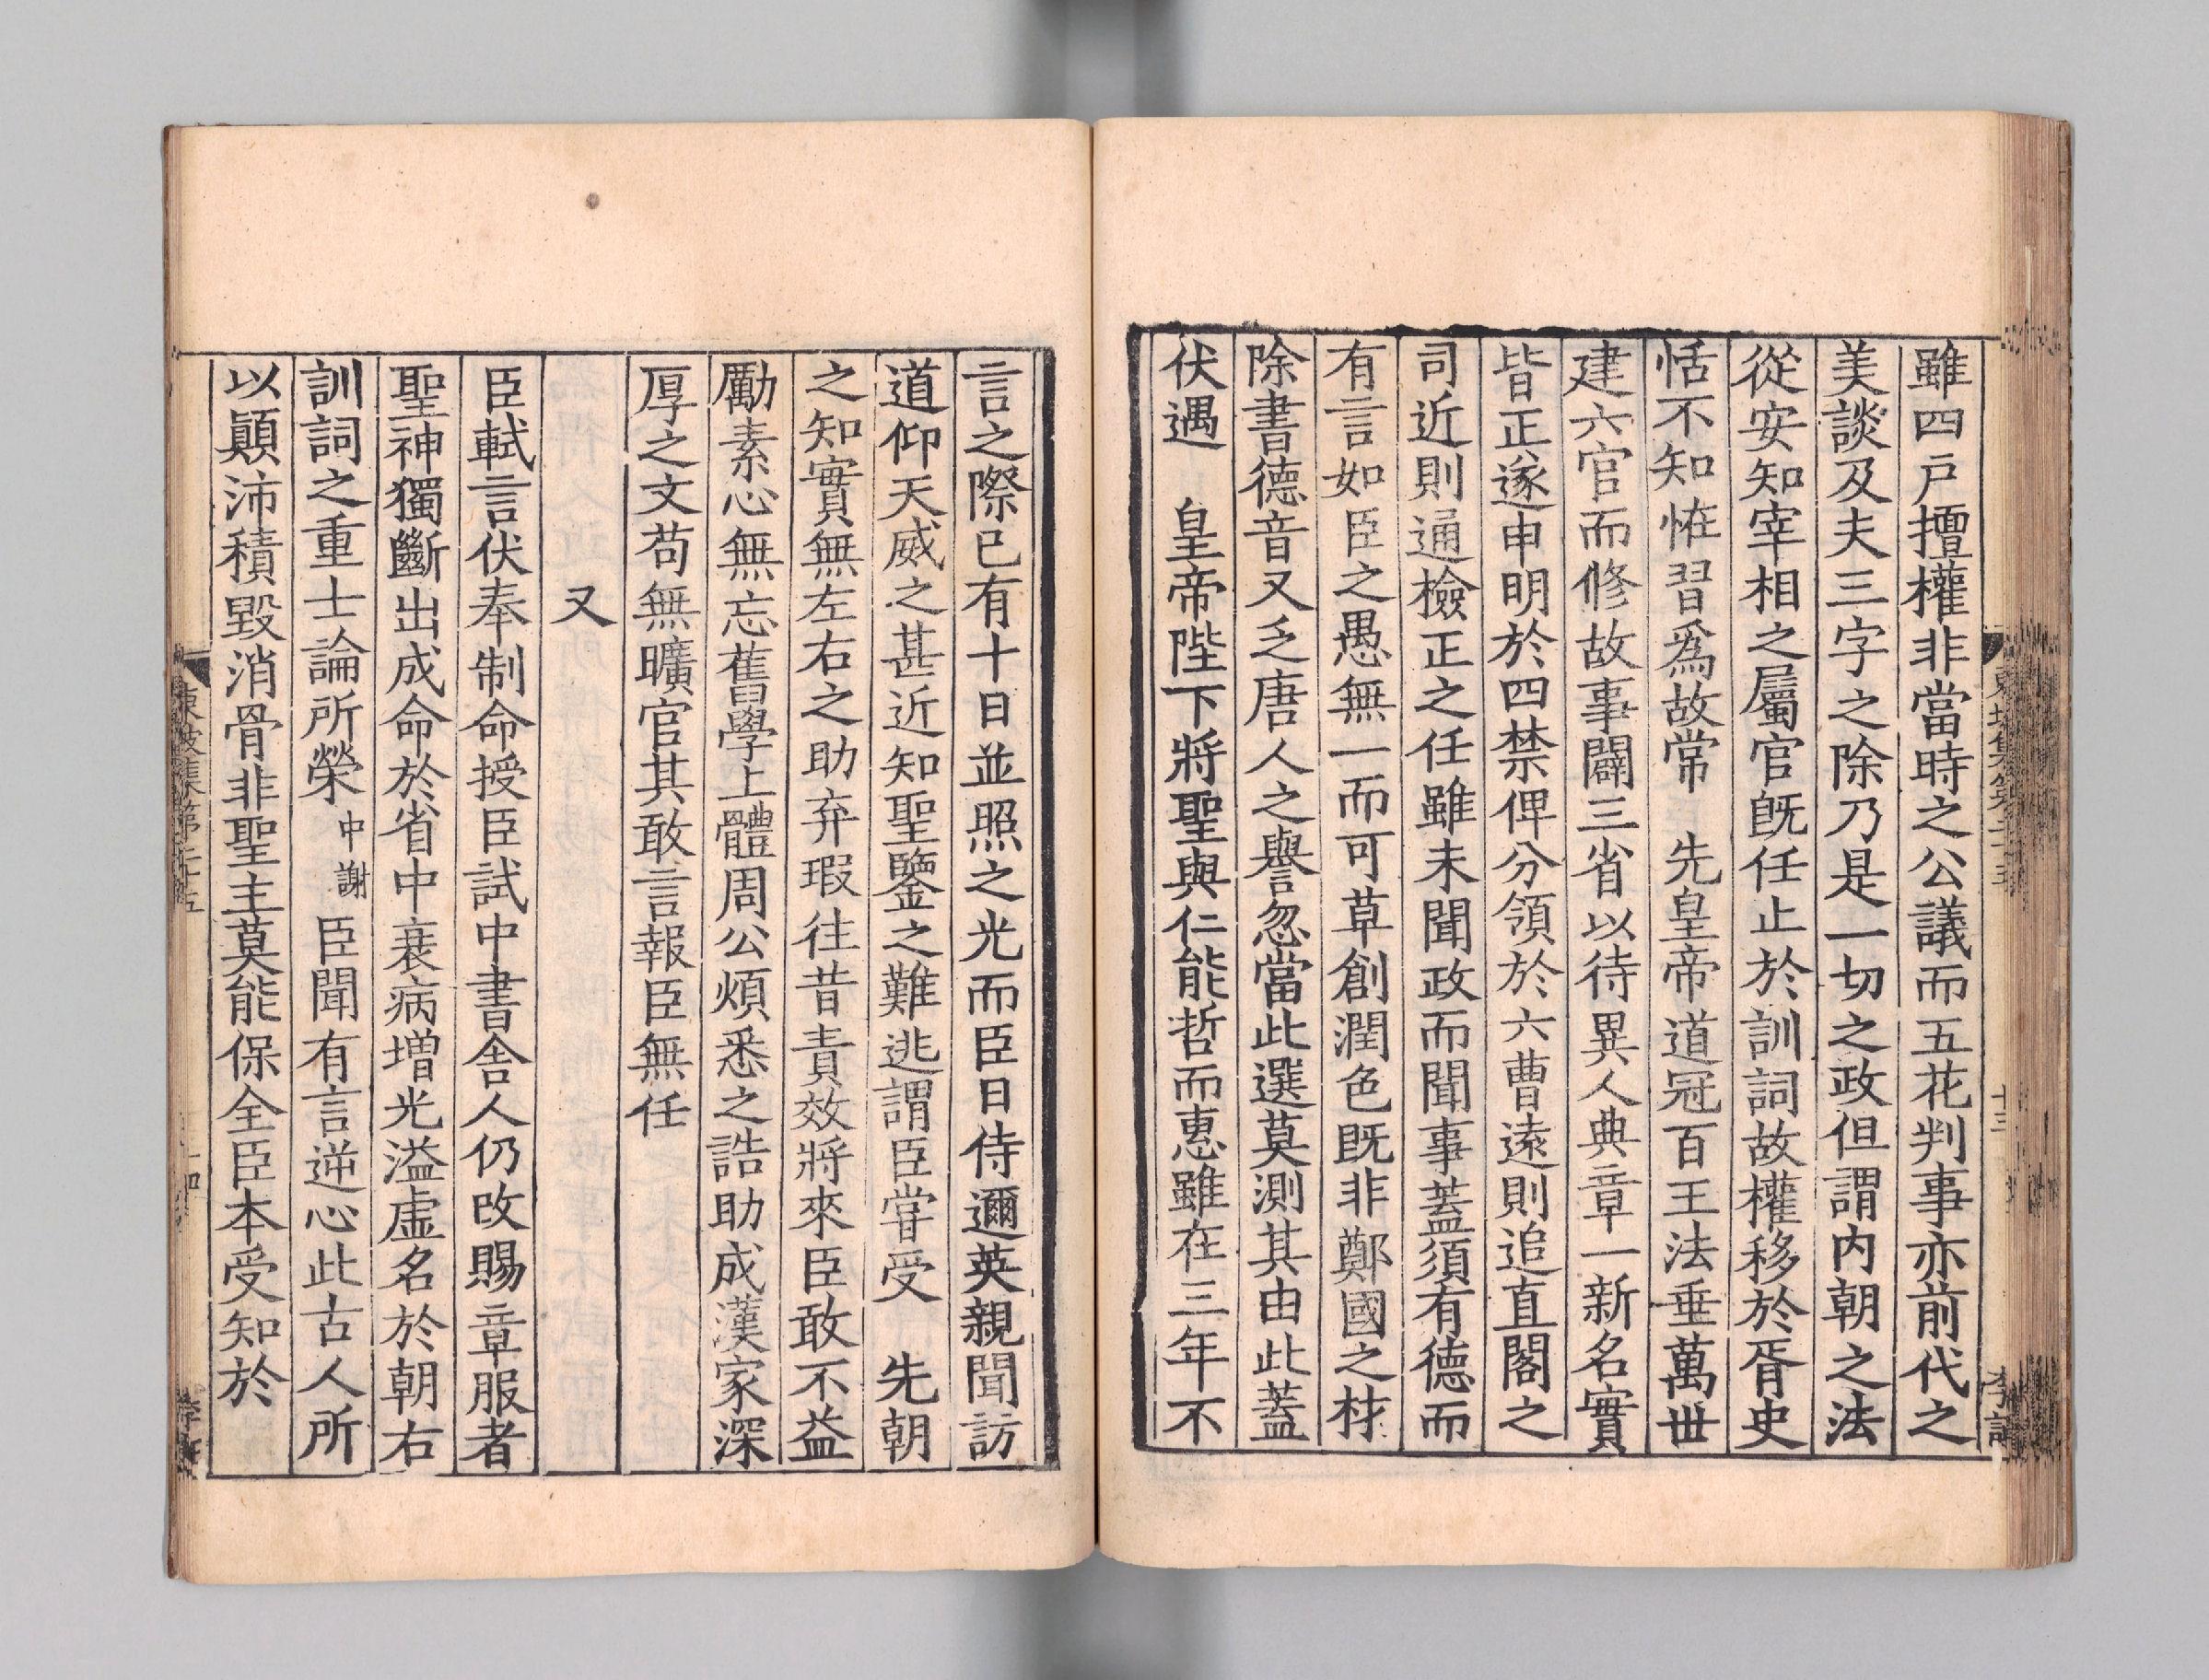 雖四戸擅權非當時之公議而五花判事亦前代之
美談及夫三字之除乃是一切之政但謂内朝之法
從安知宰相之屬官旣任止於訓詞故權移於胥史
恬不知恠習爲故常　先皇帝道冠百王法垂萬世
建六官而修故事闢三省以待異人典章一新名實
皆正遂申明於四禁俾分領於六曹遠則追直閣之
司近則通檢正之任雖未聞政而聞事蓋須有德而
有言如臣之愚無一而可草創潤色既非鄭國之材
除書德音又乏唐人之譽忽當此選莫測其由此蓋
伏遇　皇帝陛下將聖與仁能哲而惠雖在三年不
言之際已有十日並照之光而臣日侍邇英親聞訪
道仰天威之甚近知聖鑒之難逃謂臣甞受　先朝
之知實無左右之助弃瑕往昔責效將來臣敢不益
勵素心無忘舊學上體周公煩悉之誥助成漢家深
厚之文苟無曠官其敢言報臣無任
又
臣軾言伏奉制命授臣試中書舍人仍改賜章服者
聖神獨斷出成命於省中衰病增光溢虛名於朝右
訓詞之重士論所榮中謝臣聞有言逆心此古人所
以顛沛積毀消骨非聖主莫能保全臣本受知於
東坡集第二十五